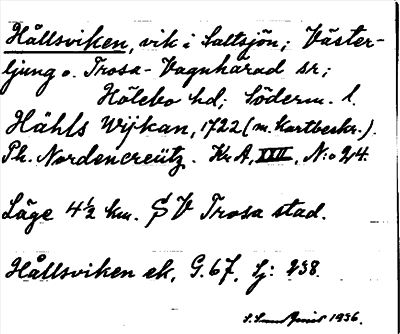 Hållsviken, vik i Saltsjön; Väster-
ljung o. Trosa-Vagnhärad sr;
Hölebo hd; Söderm. l.
Håhls Wijkan, 1722 (m. Kartbeskr.).
Ph. Nordencreütz. Kr. A, XXII, N:o 24.
Läge 4½ km. SV Trosa stad.
Hållsviken ek. G. 67, Sj: 238.
1936.